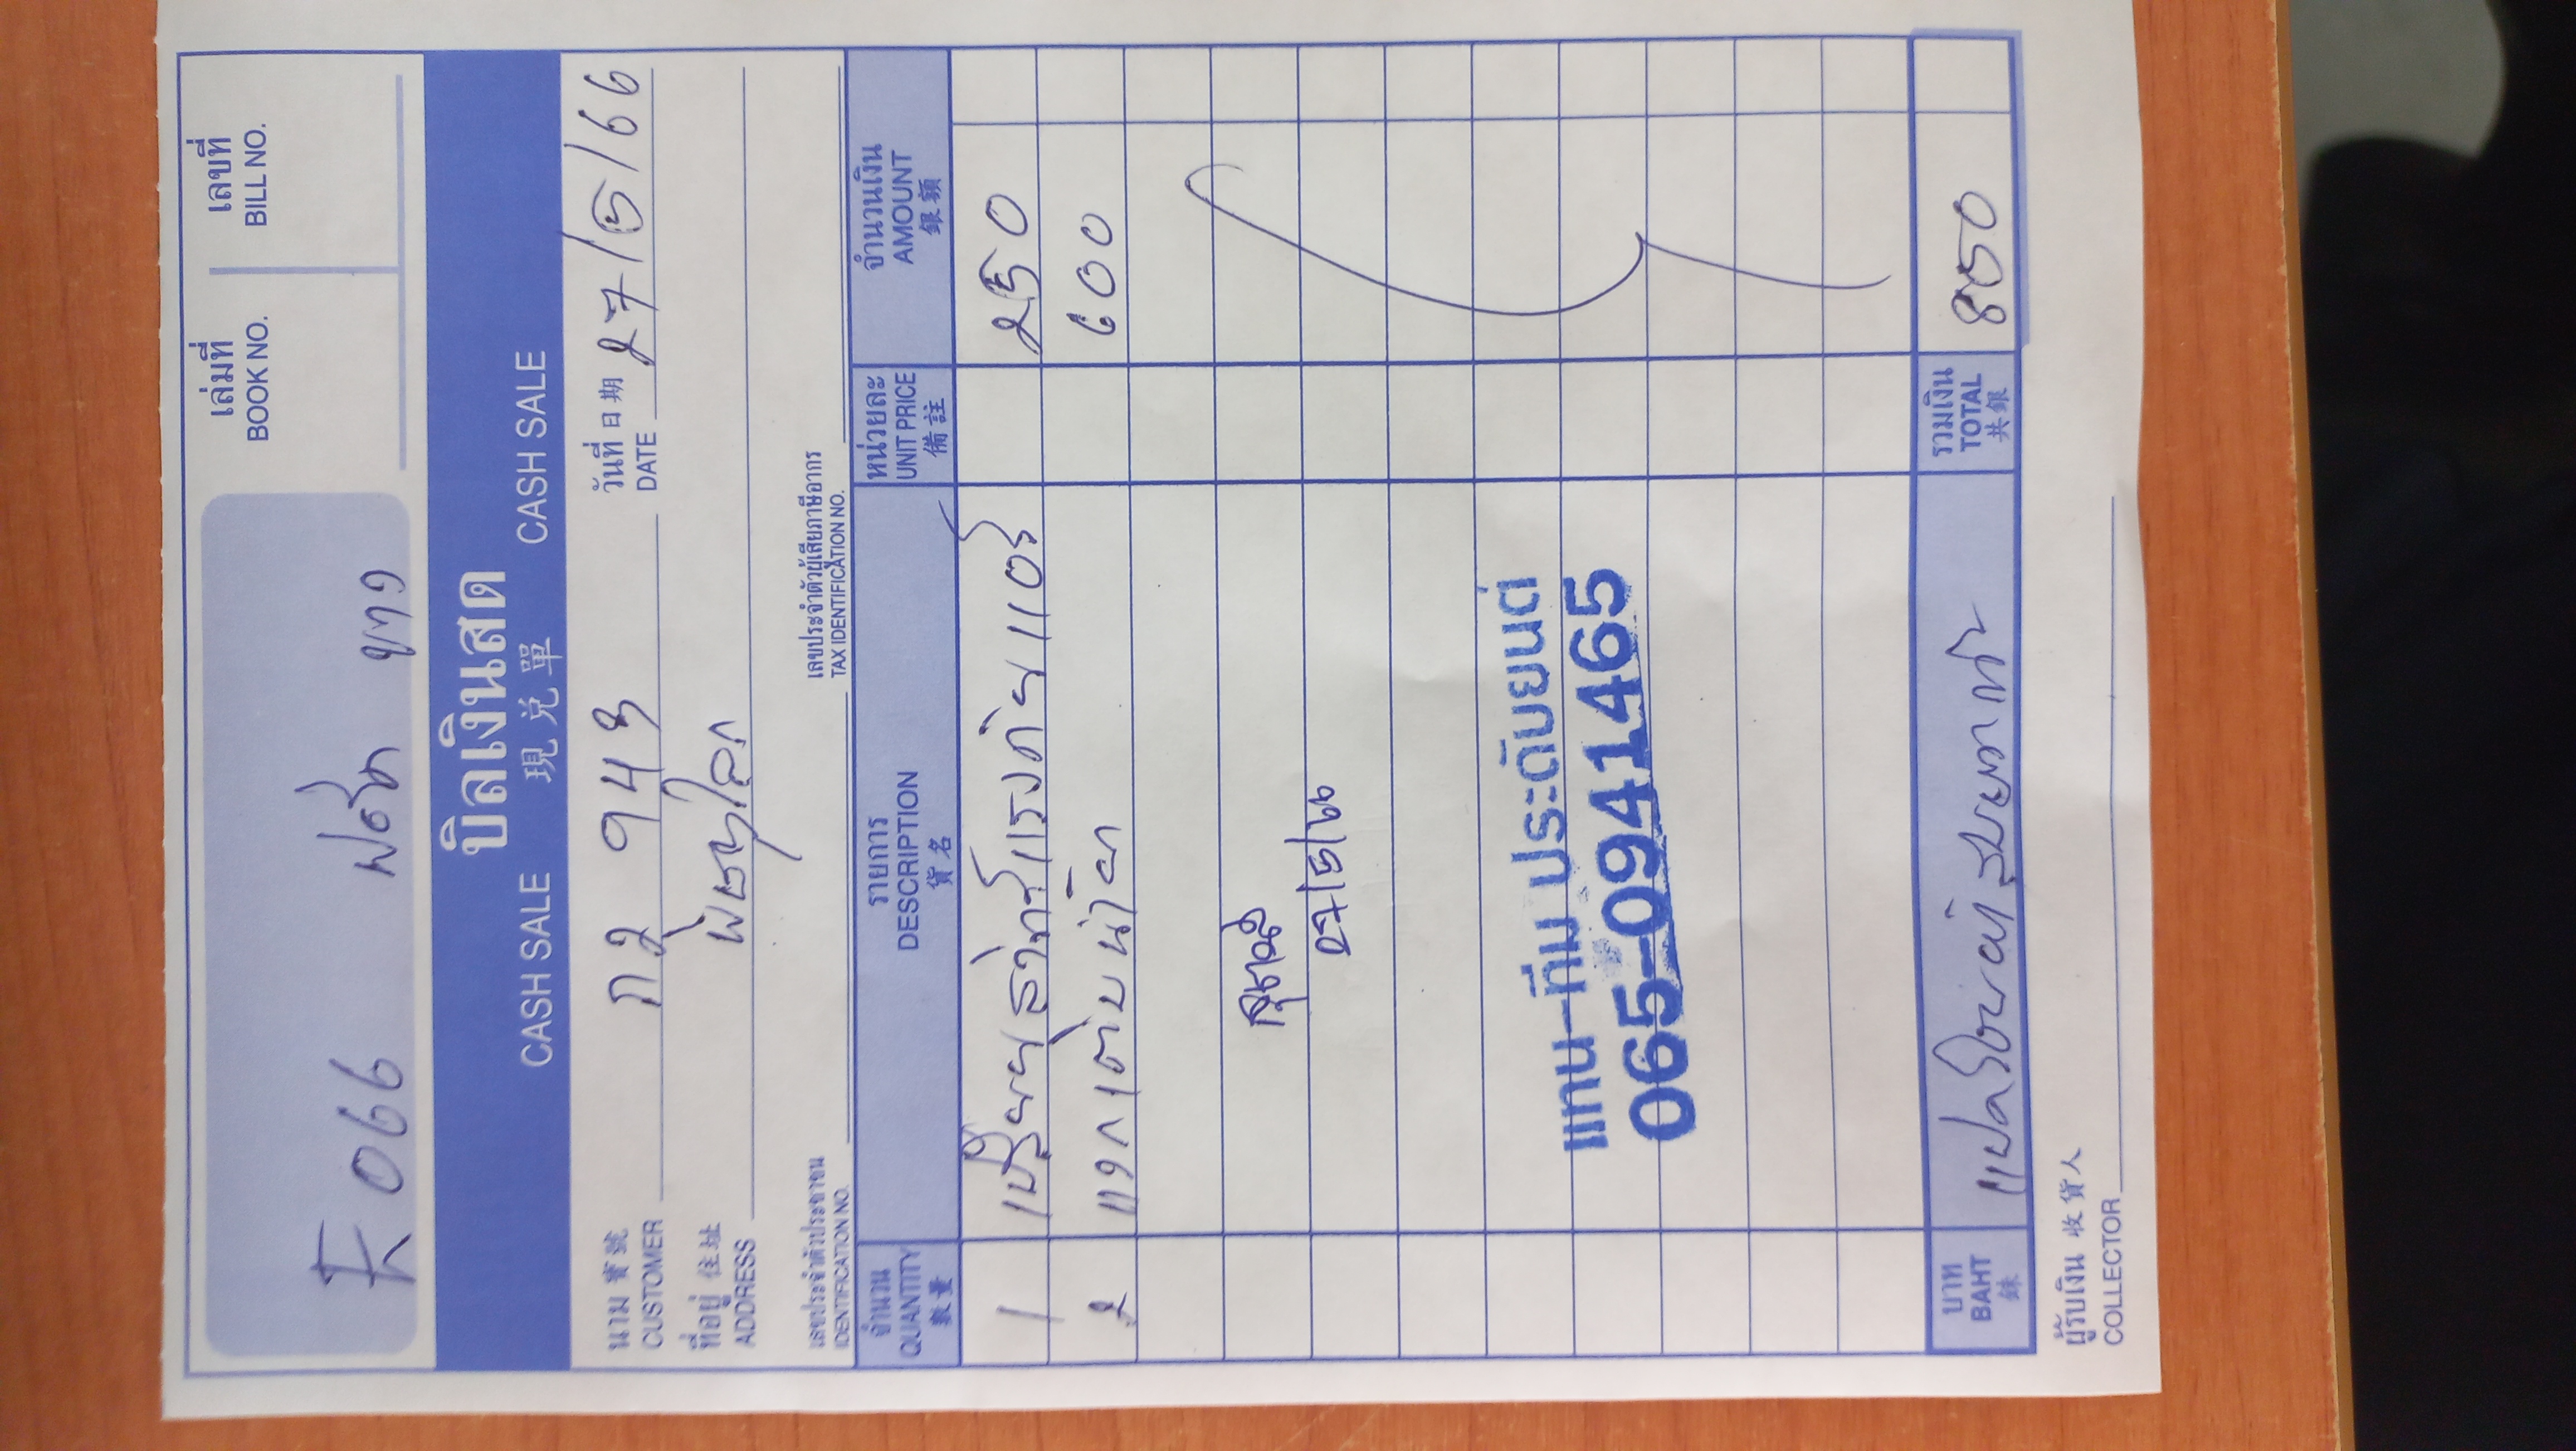 เล่มที่ เลขที่
BOOK NO. BILL NO.
K 066 ฟอร์ด ขาว
บิลเงินสด
CASH SALE 現兌單 CASH SALE
นาม 寶號 วันที่ 日期
CUSTOMER กว 943 DATE 27/5/66
ที่อยู่ 住址
ADDRESS พิษณุโลก
เลขประจำตัวประชาชน เลขประจำตัวผู้เสียภาษีอากร
IDENTIFICATION NO. TAX IDENTIFICATION NO.
จำนวน รายการ หน่วยละ จำนวนเงิน
QUANTITY DESCRIPTION UNIT PRICE AMOUNT
數量 貨名 備註 銀額
1 เปลี่ยนสวิทซ์แรงดันแอร์ 250
2 600
27/5/66
แทน-ทีม ประดับยนต์
065-0941465
บาท รวมเงิน
BAHT แปดร้อยห้าสิบบาท TOTAL 850
銖 共銀
ผู้รับเงิน 收貨人
COLLECTOR